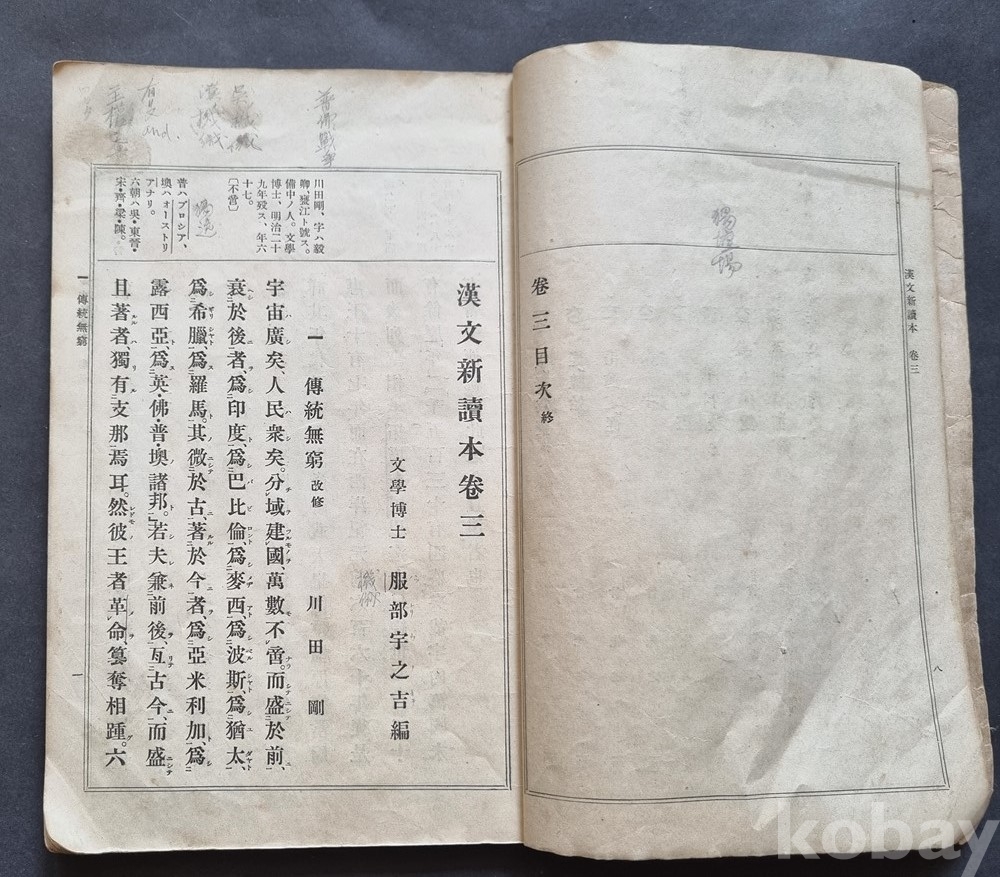 漢文新讀本 卷三
卷三目次 終
八
漢文新讀本卷三
文學博士 服部宇之吉編
一 傳統無窮 改修 川田剛
宇宙廣矣、人民衆矣。分域建國、萬數不啻。而盛於前、
衰於後者、爲印度、爲巴比倫、爲麥西、爲波斯、爲猶太、
爲希臘、爲羅馬。其微於古、著於今者、爲亞米利加、爲
露西亞、爲英・佛・普・墺諸邦。若夫兼前後、亙古今、而盛
且著者、獨有支那焉耳。然彼王者革命、簒奪相踵。六
川田剛、字ハ毅
卿、甕江ト號ス。
備中ノ人。文學
博士、明治二十
九年歿ス、年六
十七。
〔不啻〕
普ハプロシア、
墺ハオーストリ
アナリ。
六朝ハ吳・東晉・
宋・齊・梁・陳。
一 傳統無窮
一
普佛戰爭
and.
kobay